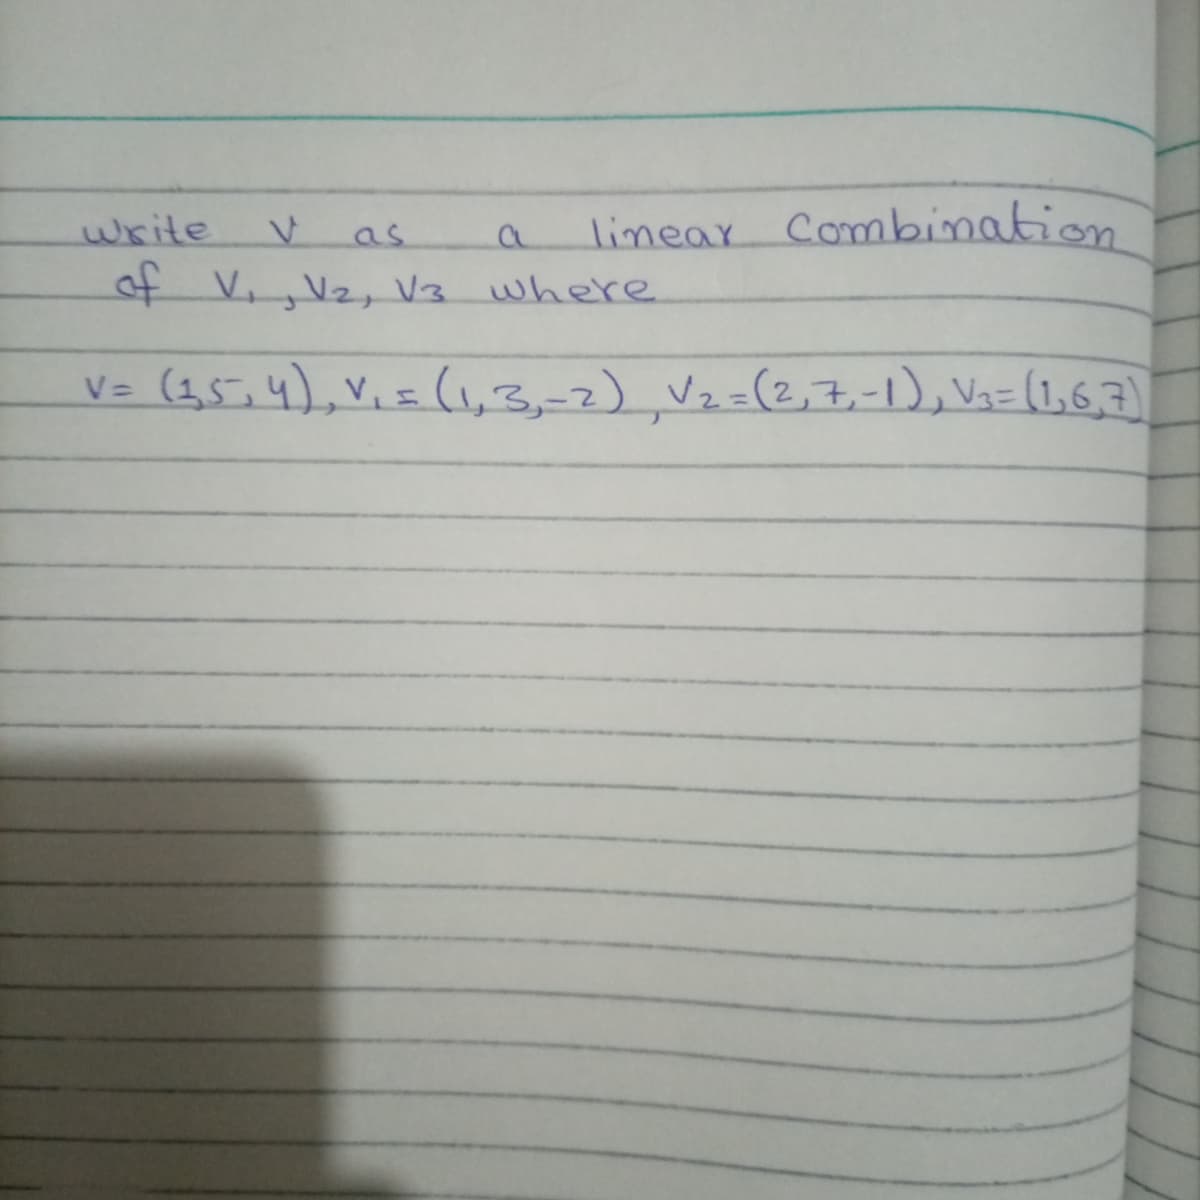 write v as a linear Combination
of V1, V2, V3 where
V= (1,5,4), V1 = (1,3,-2), V2=(2,7,-1), V3=(1,6,7)